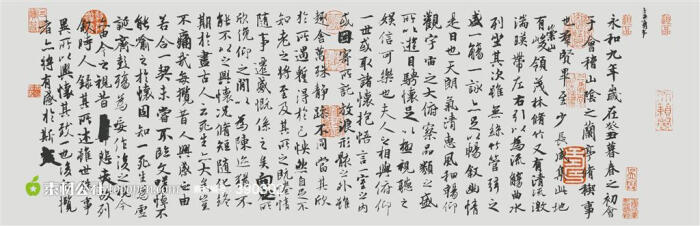 永和九年歲在癸丑暮春之初會
于會稽山陰之蘭亭脩稧事
也群賢畢至少長咸集此地
有崇山峻領茂林脩竹又有清流激
湍暎帶左右引以為流觴曲水
列坐其次雖無絲竹管弦之
盛一觴一詠亦足以暢敘幽情
是日也天朗氣清惠風和暢仰
觀宇宙之大俯察品類之盛
所以遊目騁懷足以極視聽之
娛信可樂也夫人之相與俯仰
一世或取諸懷抱悟言一室之內
或因寄所託放浪形骸之外雖
趣舍萬殊靜躁不同當其欣
於所遇暫得於己快然自足不
知老之將至及其所之既惓情
隨事遷感慨係之矣向之所
欣俛仰之閒以為陳迹猶不
能不以之興懷況脩短隨化終
期於盡古人云死生亦大矣豈
不痛哉每攬昔人興感之由
若合一契未嘗不臨文嗟悼不
能喻之於懷固知一死生為虛
誕齊彭殤為妄作後之視今
亦由今之視昔悲夫故列
敘時人錄其所述雖世殊事
異所以興懷其致一也後之攬
者亦將有感於斯
素材公社 tooopen.com